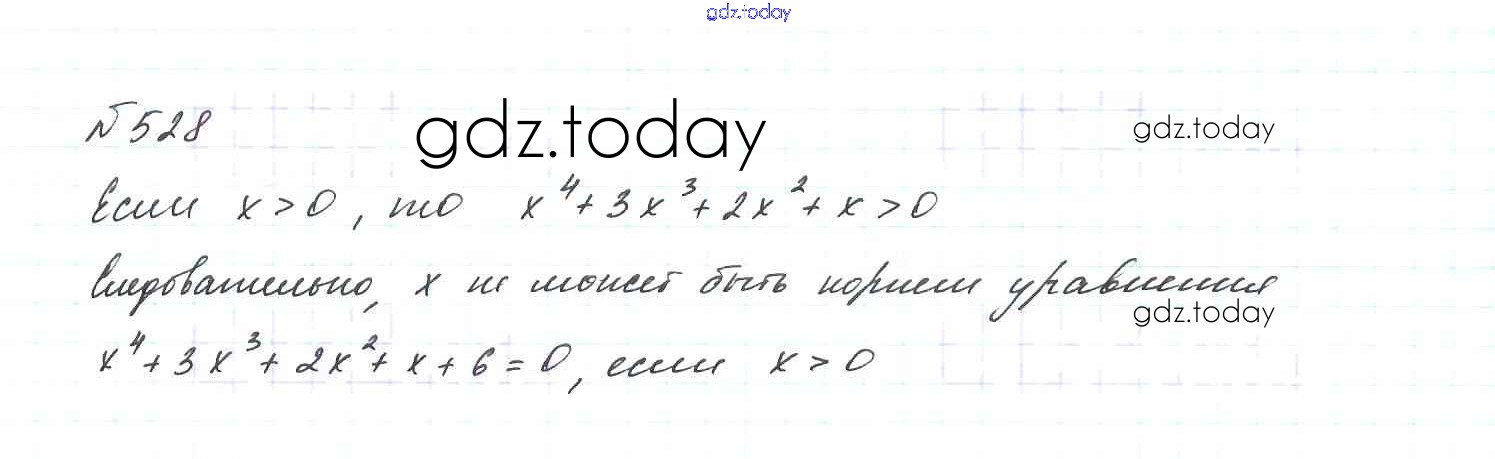 gdz.today
№ 528
gdz.today
gdz.today
Если x > 0, то x⁴ + 3x³ + 2x² + x > 0
Следовательно, x не может быть корнем уравнения
gdz.today
x⁴ + 3x³ + 2x² + x + 6 = 0, если x > 0